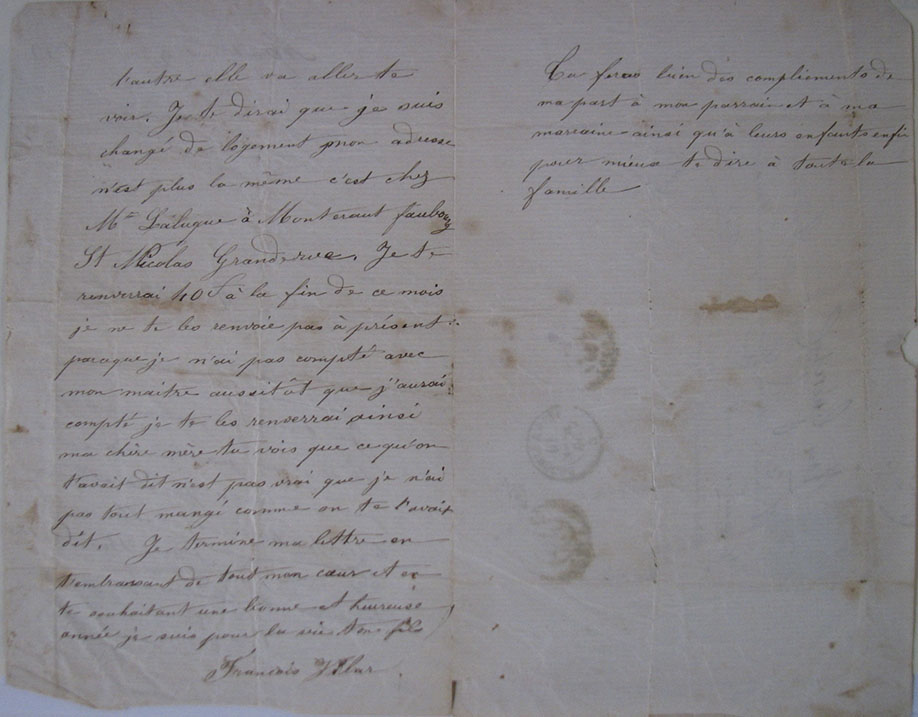 l'autre elle va aller te
voir. Je te dirai que je suis
changé de logement mon adresse
n'est plus la même c'est chez
Mme Lalugue à Montereaut faubourg
St Nicolas Granderue. Je te
renverrai 40 f à la fin de ce mois
je ne te les renvoie pas à présent
paceque je n'ai pas compté avec
mon maitre aussitôt que j'aurai
compté je te les renverrai ainsi
ma chère mère tu vois que ce qu'on
t'avait dit n'est pas vrai que je n'ai
pas tout mangé comme on te l'avait
dit. Je termine ma lettre en
t'embrassant de tout mon cœur et en
te souhaitant une bonne et heureuse
année je suis pour la vie ton fils
François
Tu feras bien des compliements de
ma part à mon parrain et à ma
marraine ainsi qu'à leurs enfants enfin
pour mieux te dire à toute la
famille